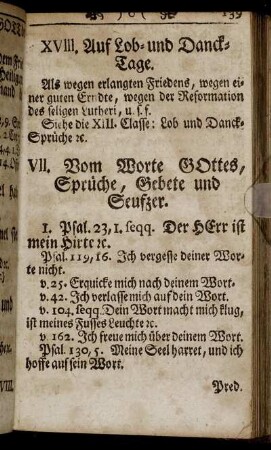 ) o (
139
XVIII. Auf Lob- und Danck-
Tage.
Als wegen erlangten Friedens, wegen ei-
ner guten Erndte, wegen der Reformation
des seligen Lutheri, u. s. f.
Siehe die XiII. Classe: Lob und Danck-
Sprüche ꝛc.
VII. Vom Worte GOttes,
Sprüche, Gebete und
Seufzer.
1. Psal. 23, 1. seqq. Der HErr ist
mein Hirte ꝛc.
Psal. 119, 16. Ich vergesse deiner Wor-
te nicht.
v. 25. Erquicke mich nach deinem Wort.
v. 42. Ich verlasse mich auf dein Wort.
v. 104. seqq. Dein Wort macht mich klug,
ist meines Fusses Leuchte ꝛc.
v 162. Ich freue mich über deinem Wort.
Psal. 130, 5. Meine Seel harret, und ich
hoffe auf sein Wort.
Pred.